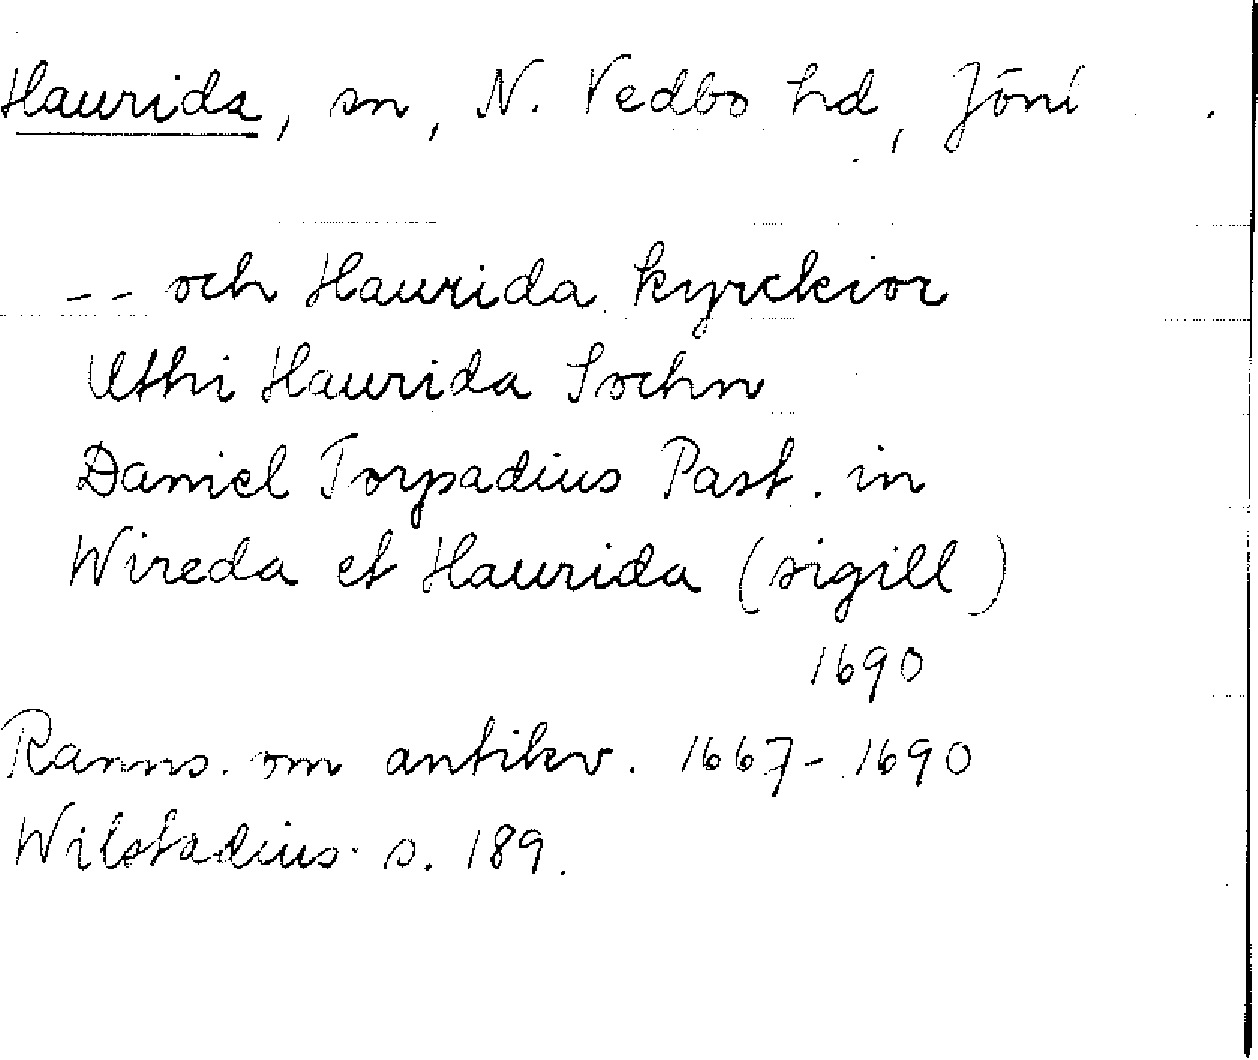 Haurida, sn, N. Vedbo hd, Jönk
-- och Haurida kyrckior
Uthi Haurida Sochn
Daniel Torpadius Past. in
Wireda et Haurida (sigill)
1690
Ranns. om antikv. 1667-1690
Wilstadius s. 189.